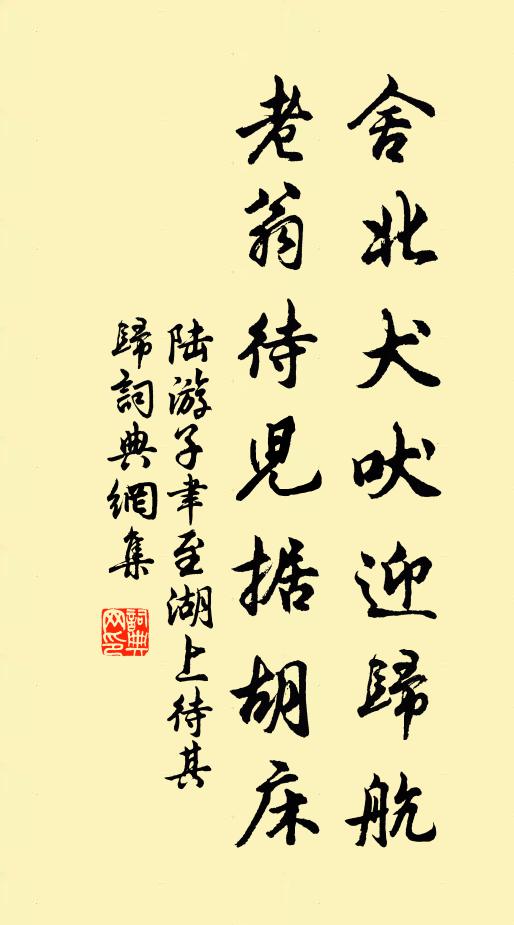 舍北犬吠迎歸航
老翁待児据胡床
陸游子聿至湖上待其
歸詞典網集
詞典网印